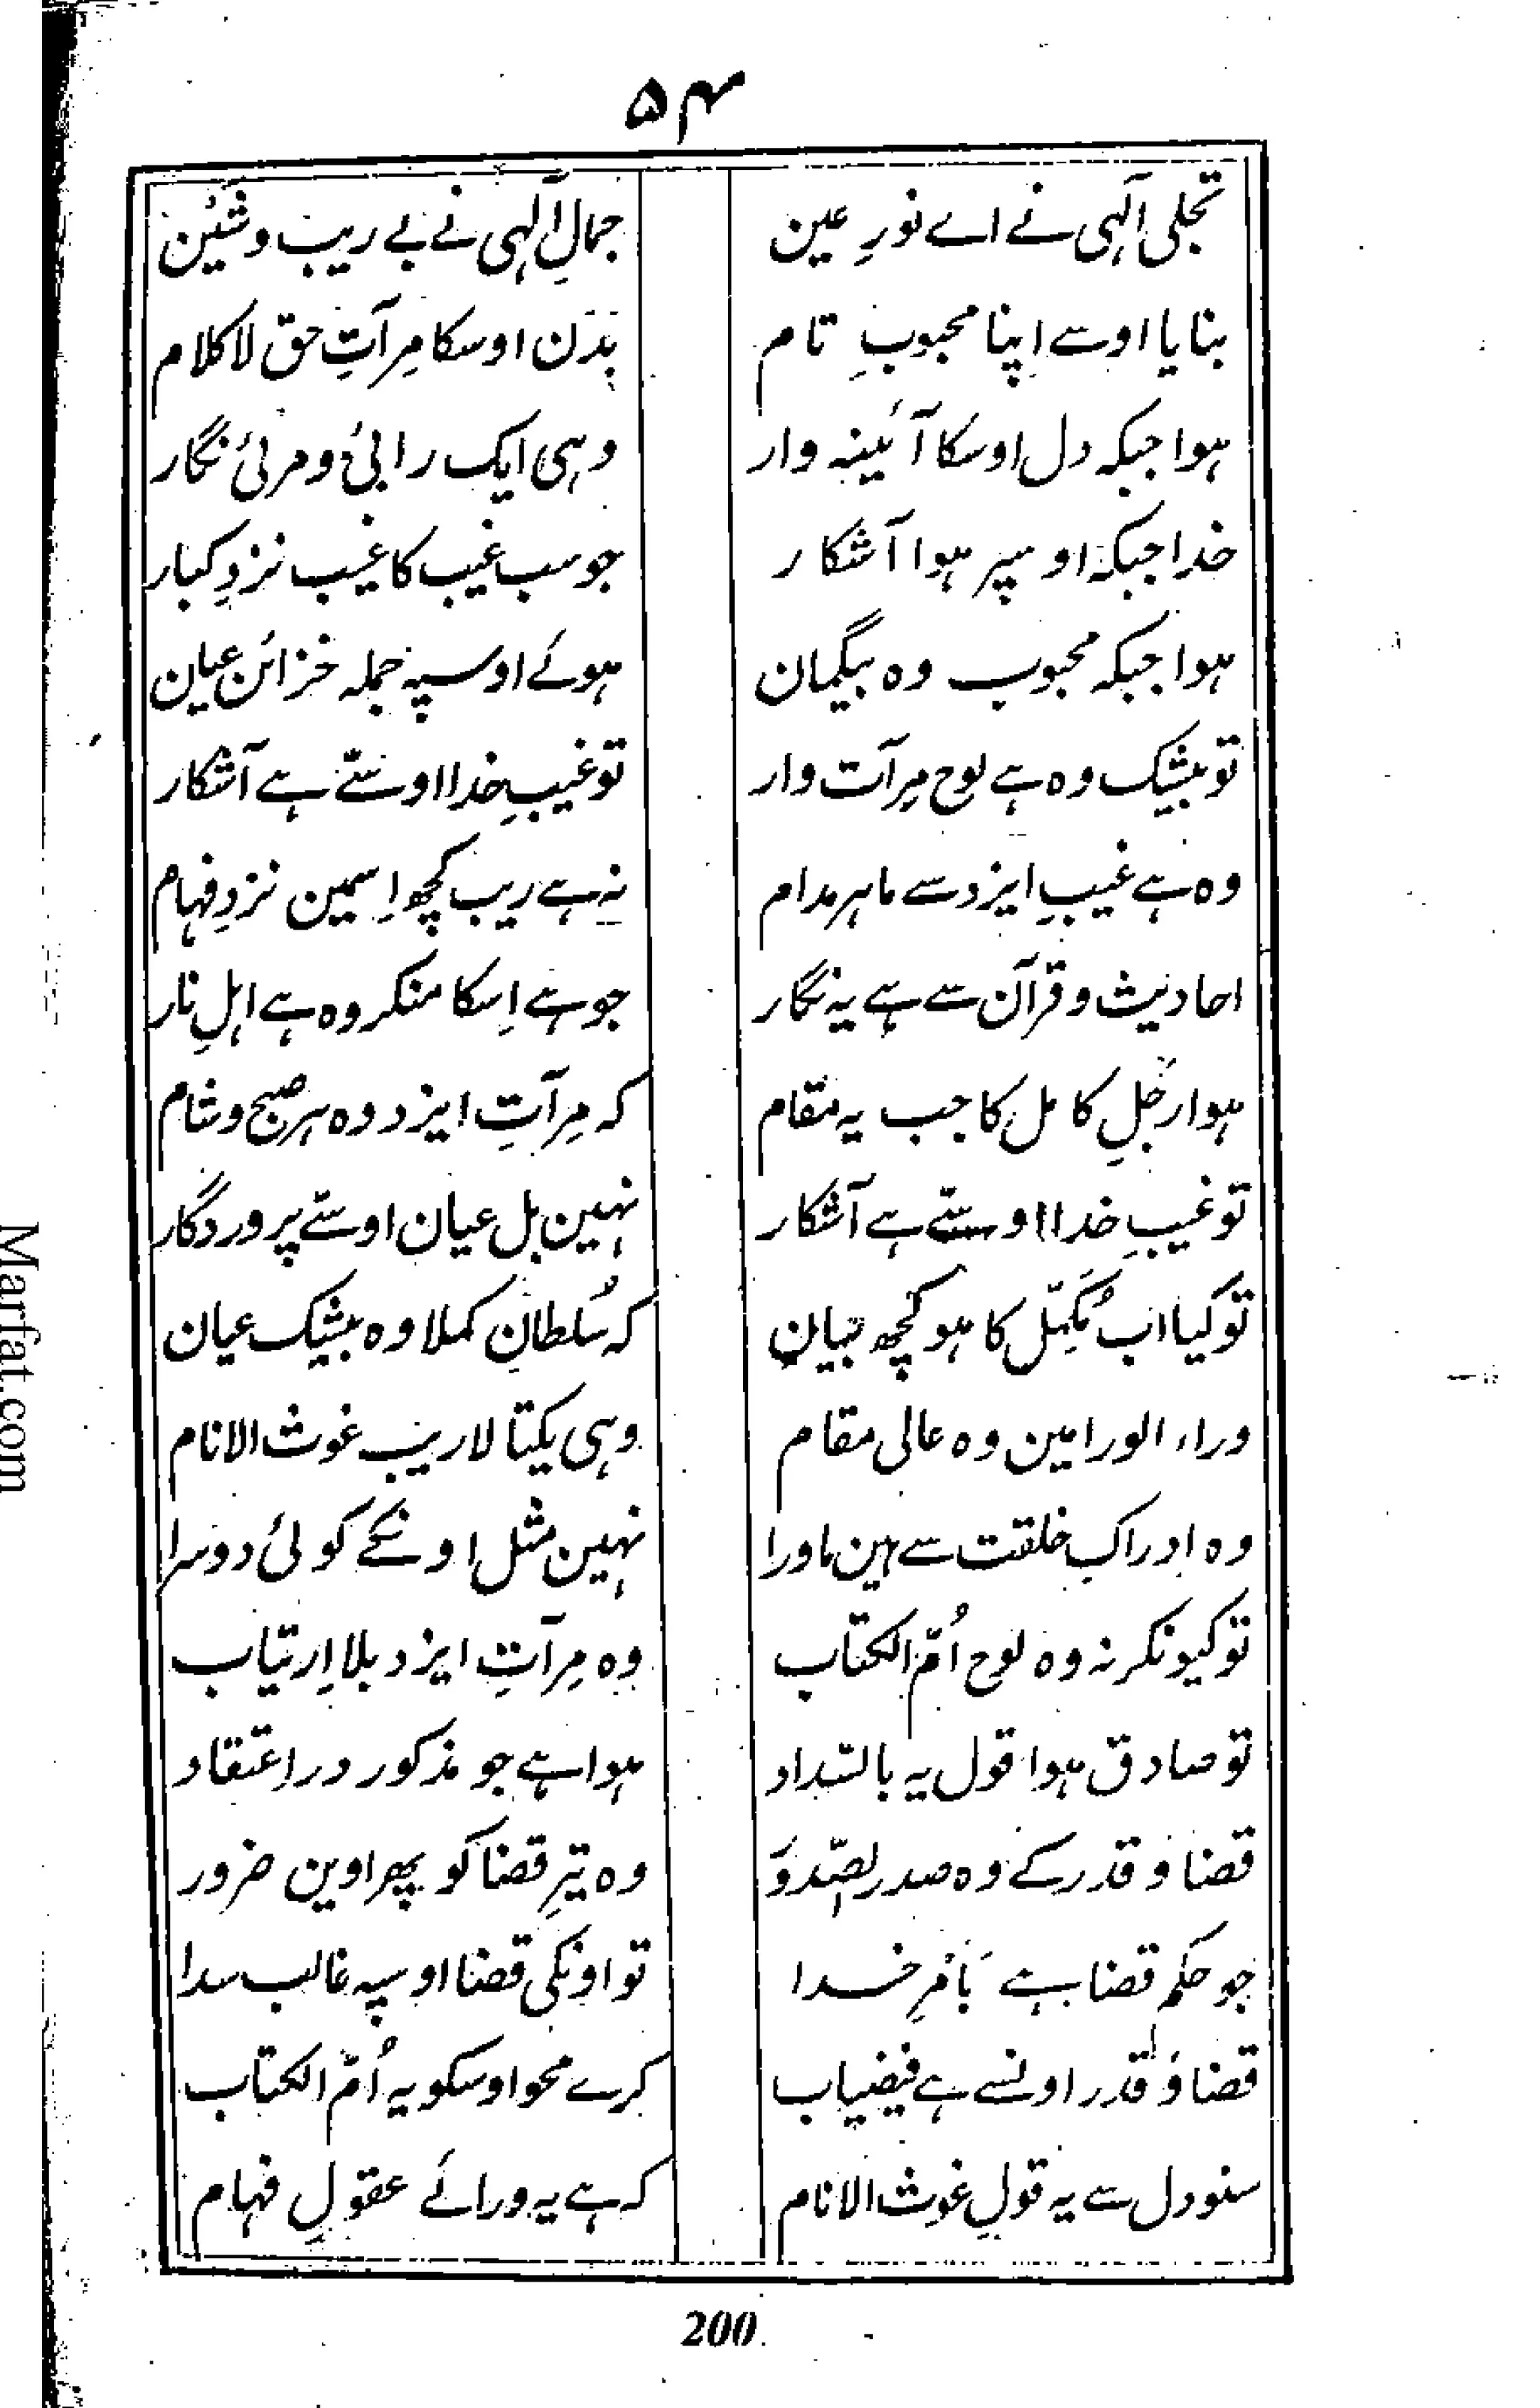 ۵۴
تجلی الٰہی نے اے نورِ عین جمالِ الٰہی نے بے ریب وشَین
بنایا اوسے اپنا محبوبِ تام بدَن اوسکا مِرآتِ حق لا کلام
ہوا جبکہ دل اوسکا آئینہ وار وہی ایک رائی و مرئی نگار
خدا جبکہ اوسپر ہوا آشکار جو سب غیب کا غیب نزدِ کبار
ہوا جبکہ محبوب وہ بیگمان ہوئے اوسپہ جملہ خزائن عیان
تو بیشک وہ ہے لوح مِرآت وار تو غیبِ خدا اوستے ہے آشکار
وہ ہے غیبِ ایزد سے ماہر مدام نہ ہے ریب کچھ اِسمین نزدِ فہام
احادیث و قرآن سے ہے یہ نگار جو ہے اِسکا منکر وہ ہے اہلِ نار
ہوا رجُلِ کامل کا جب یہ مقام کہ مِرآتِ ایزد وہ ہر صبح وشام
تو غیبِ خدا اوستے ہے آشکار نہین بل عیان اوستے پروردگار
تو کیا اب مُکمّل کا ہو کچھ بیان کہ سُلطانِ کملا وہ بیشک عیان
وراء الورا مین وہ عالی مقام وہی یکتا لاریب غوث الانام
وہ ادراک خلقت سے ہین ماورا نہین مثل اونکے کوئی دوسرا
تو کیونکر نہ وہ لوح اُمّ الکتاب وہ مِرآتِ ایزد بلا اِرتیاب
تو صادق ہوا قول یہ بالسّداد ہوا ہے جو مذکور در اعتقاد
قضا و قدر کے وہ صدر لصّدوَ وہ تیرِ قضا کو پھراوین ضرور
جو حکم قضا ہے بَامْرِ خدا تو اونکی قضا اوسپہ غالب سدا
قضا وَ قدر اونسے ہے فیضیاب کرے محو اوسکو یہ اُمّ الکتاب
سنو دل سے یہ قولِ غوث الانام کہ ہے یہ ورائے عقولِ فہام
200
Marfat.com